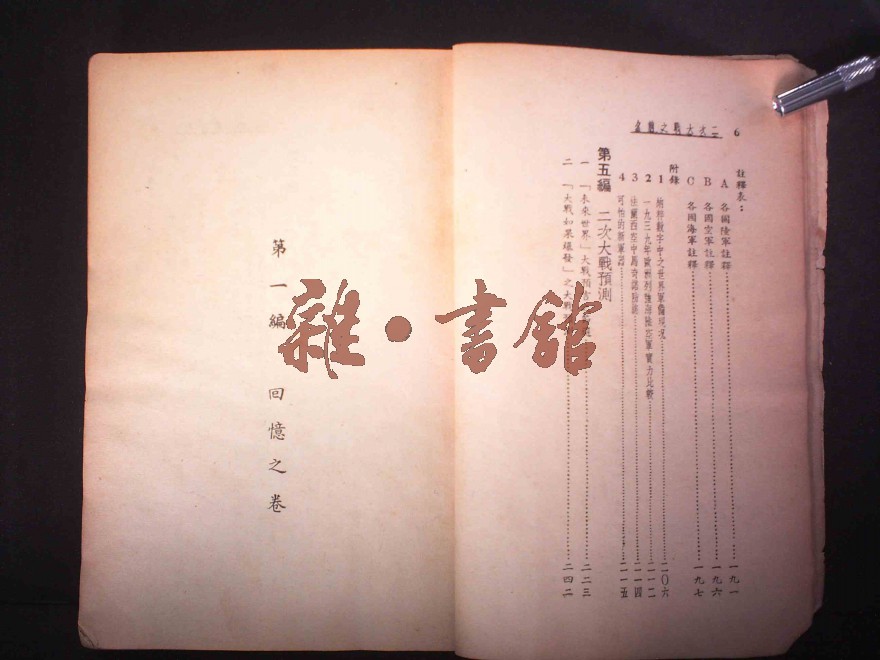 6 二次大戰之體系
註釋表：
A 各國陸軍註釋 一九一
B 各國空軍註釋 一九六
C 各國海軍註釋 一九七
附錄
1 數字中之世界軍備現況 二〇六
2 一九三九年歐洲列強海陸空軍實力比較 二一二
3 法蘭西空中 二一四
4 可怕的新軍器 二一五
第五編 二次大戰預測
一 「未來世界」大戰 二二三
二 「大戰如果爆發」之大戰 二四二
第一編 回憶之卷
雜・書館